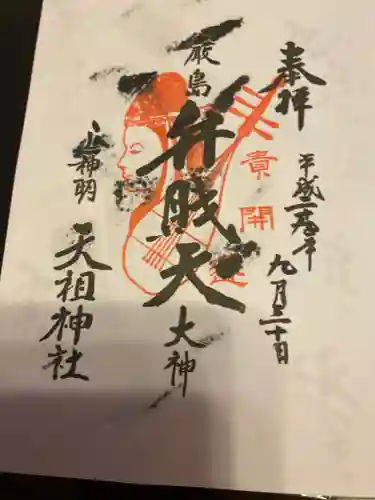 奉祥
平成二十九年
九月三十日
貴
開運
厳島
弁賎天
大神
小神明
天祖神社